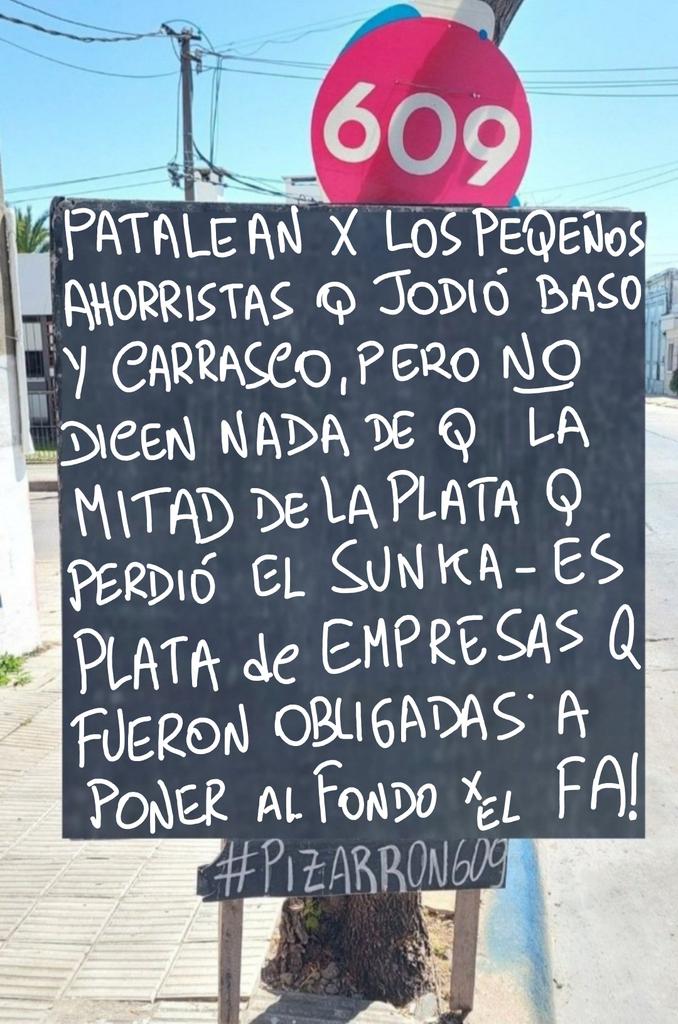 609
PATALEAN X LOS PEQEÑOS
AHORRISTAS Q JODIÓ BASO
Y CARRASCO, PERO NO
DICEN NADA DE Q LA
MITAD DE LA PLATA Q
PERDIÓ EL SUNKA - ES
PLATA de EMPRESAS Q
FUERON OBLIGADAS A
PONER AL FONDO X EL FA!
#PIZARRON609